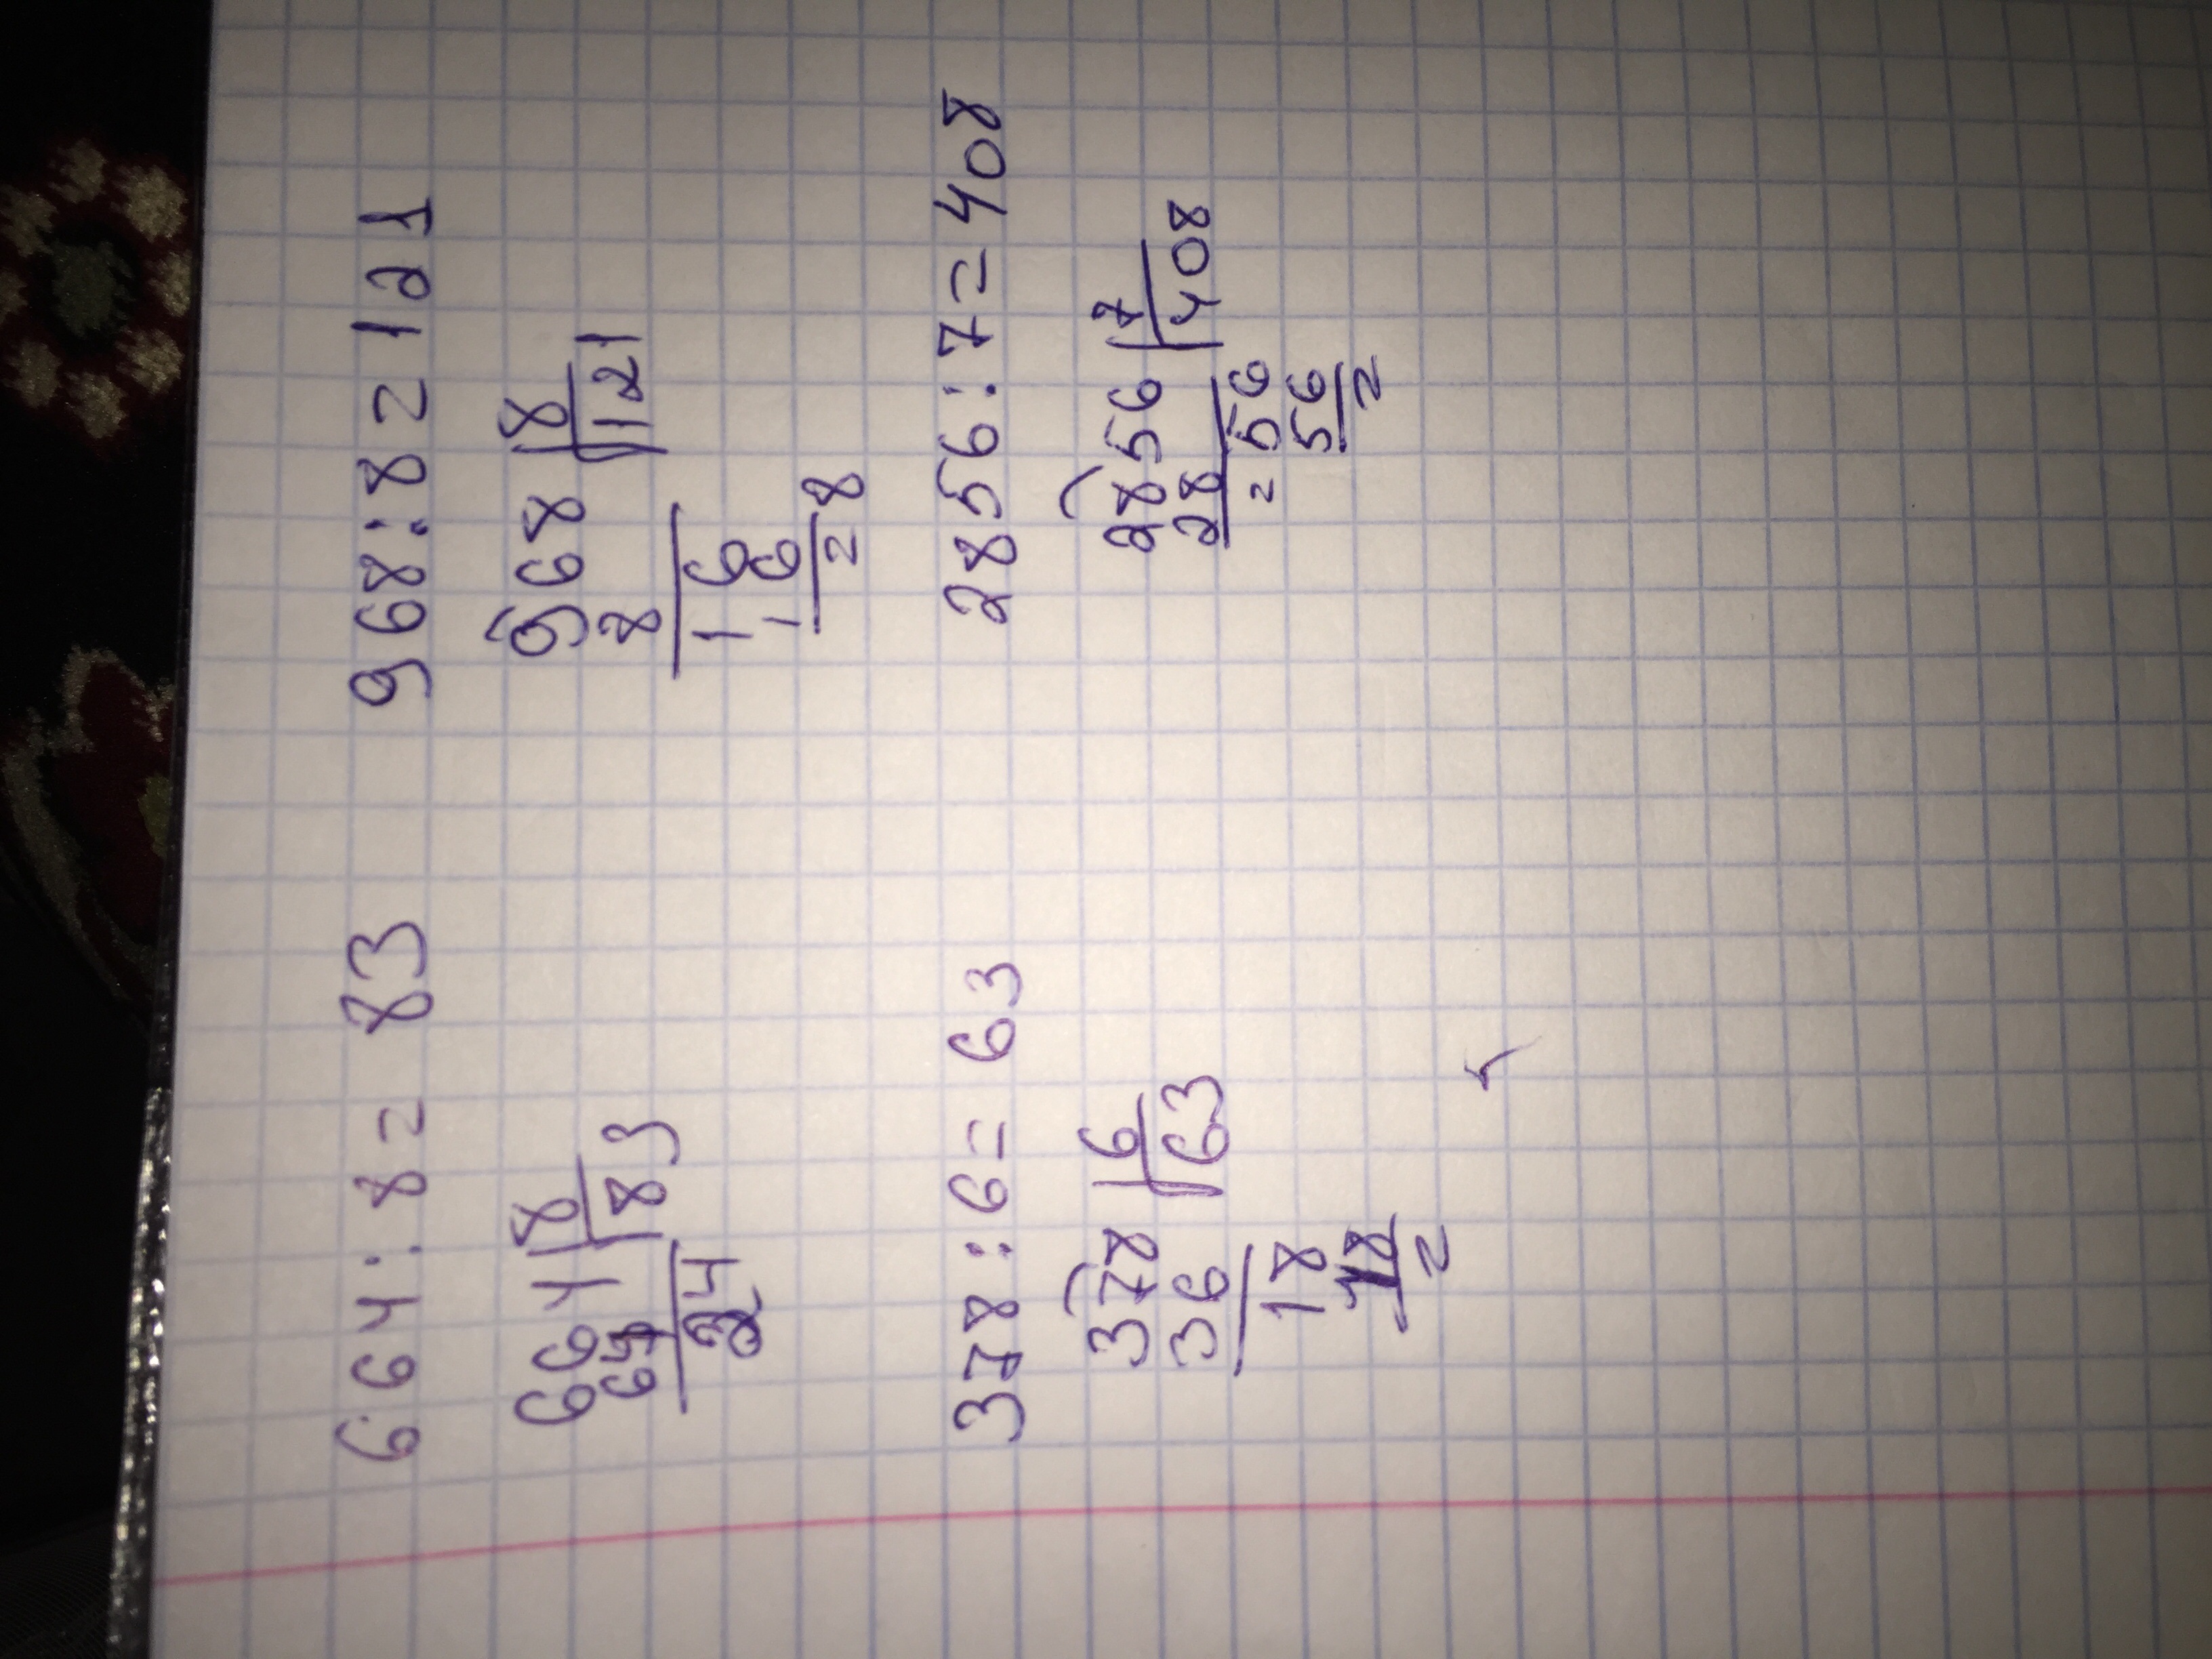 664 : 8 = 83
664 | 8
64 | 83
24
968 : 8 = 121
968 | 8
8 | 121
16
16
= 8
378 : 6 = 63
378 | 6
36 | 63
18
18
=
2856 : 7 = 408
2856 | 7
28 | 408
= 56
56
=